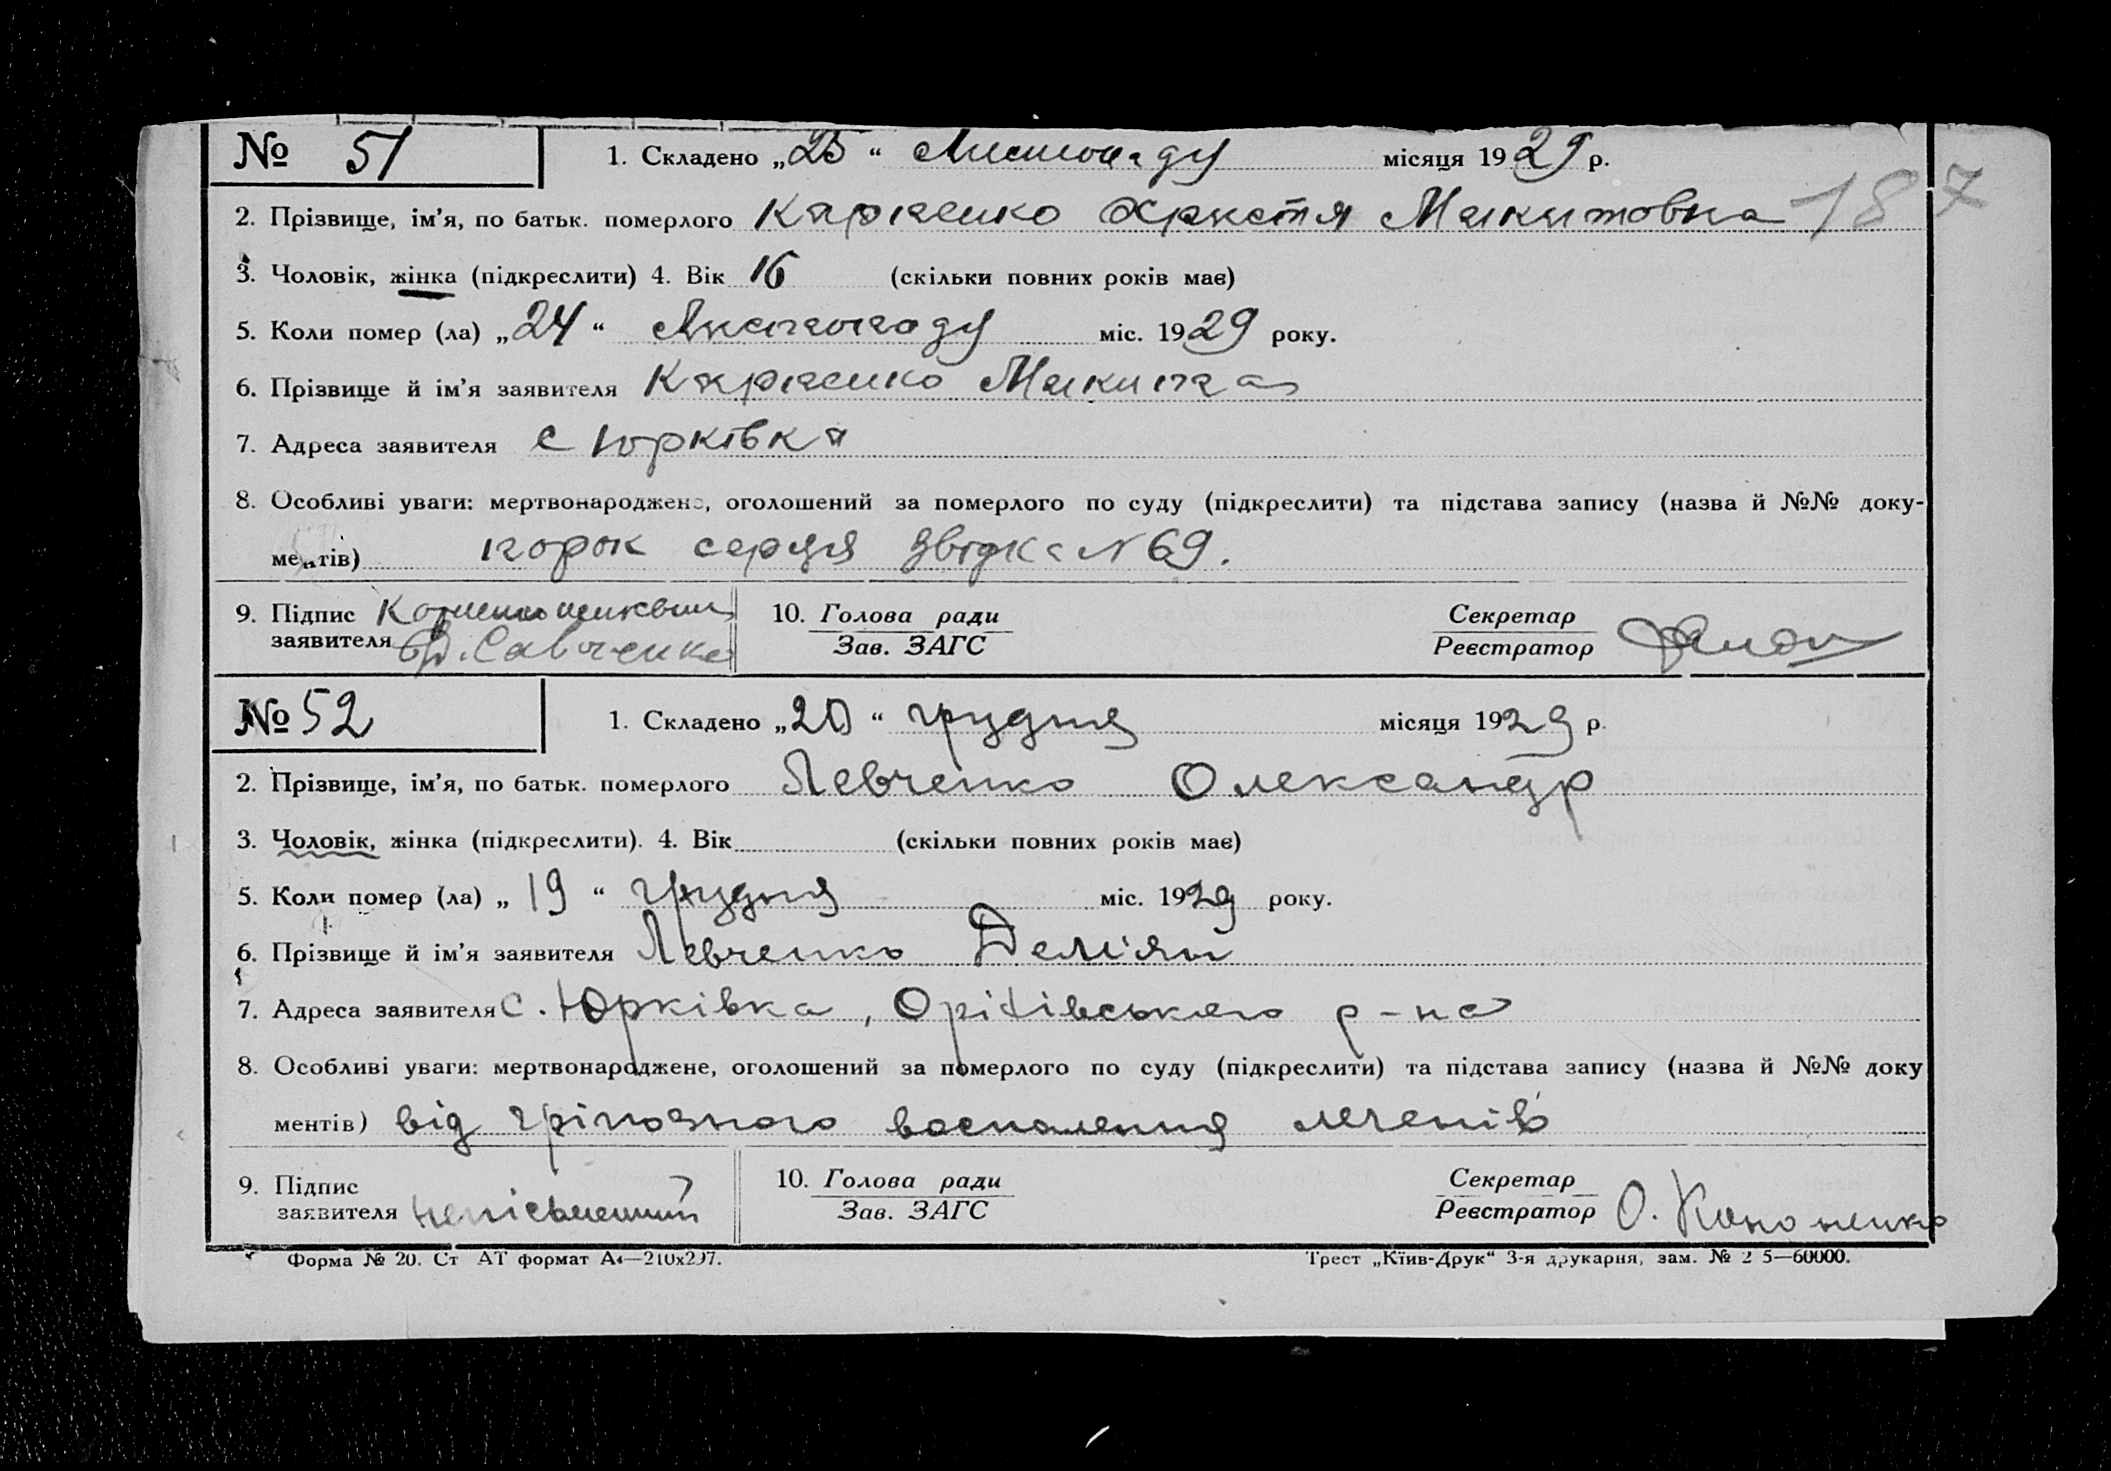 № 51 1. Складено „25“ Листопаду місяця 1929 р.
2. Прізвище, ім’я, по батьк. померлого Карпенко Христя Микитовна 187
3. Чоловік, жінка (підкреслити) 4. Вік 16 (скільки повних років має)
5. Коли помер (ла) „24“ Листопаду міс. 1929 року.
6. Прізвище й ім’я заявителя Карпенко Микита
7. Адреса заявителя с Юрківка
8. Особливі уваги: мертвонароджене, оголошений за померлого по суду (підкреслити) та підстава запису (назва й №№ доку-
ментів) порок серця звідка N 69.
9. Підпис 10. Голова ради Секретар
заявителя Савченко Зав. ЗАГС Реєстратор
№ 52 1. Складено „20“ грудня місяця 1929 р.
2. Прізвище, ім’я, по батьк. померлого Левченко Олександр
3. Чоловік, жінка (підкреслити). 4. Вік (скільки повних років має)
5. Коли помер (ла) „19“ грудня міс. 1929 року.
6. Прізвище й ім’я заявителя Левченко Дем'ян
7. Адреса заявителя с. Юрківка, Оріхівського р-на
8. Особливі уваги: мертвонароджене, оголошений за померлого по суду (підкреслити) та підстава запису (назва й №№ доку
ментів) від гріпозного воспалення легенів
9. Підпис 10. Голова ради Секретар
заявителя неписьменний Зав. ЗАГС Реєстратор О. Кононенко
Форма № 20. Ст АТ формат А4—210х297. Трест „Київ-Друк“ 3-я друкарня, зам. № 2 5—60000.